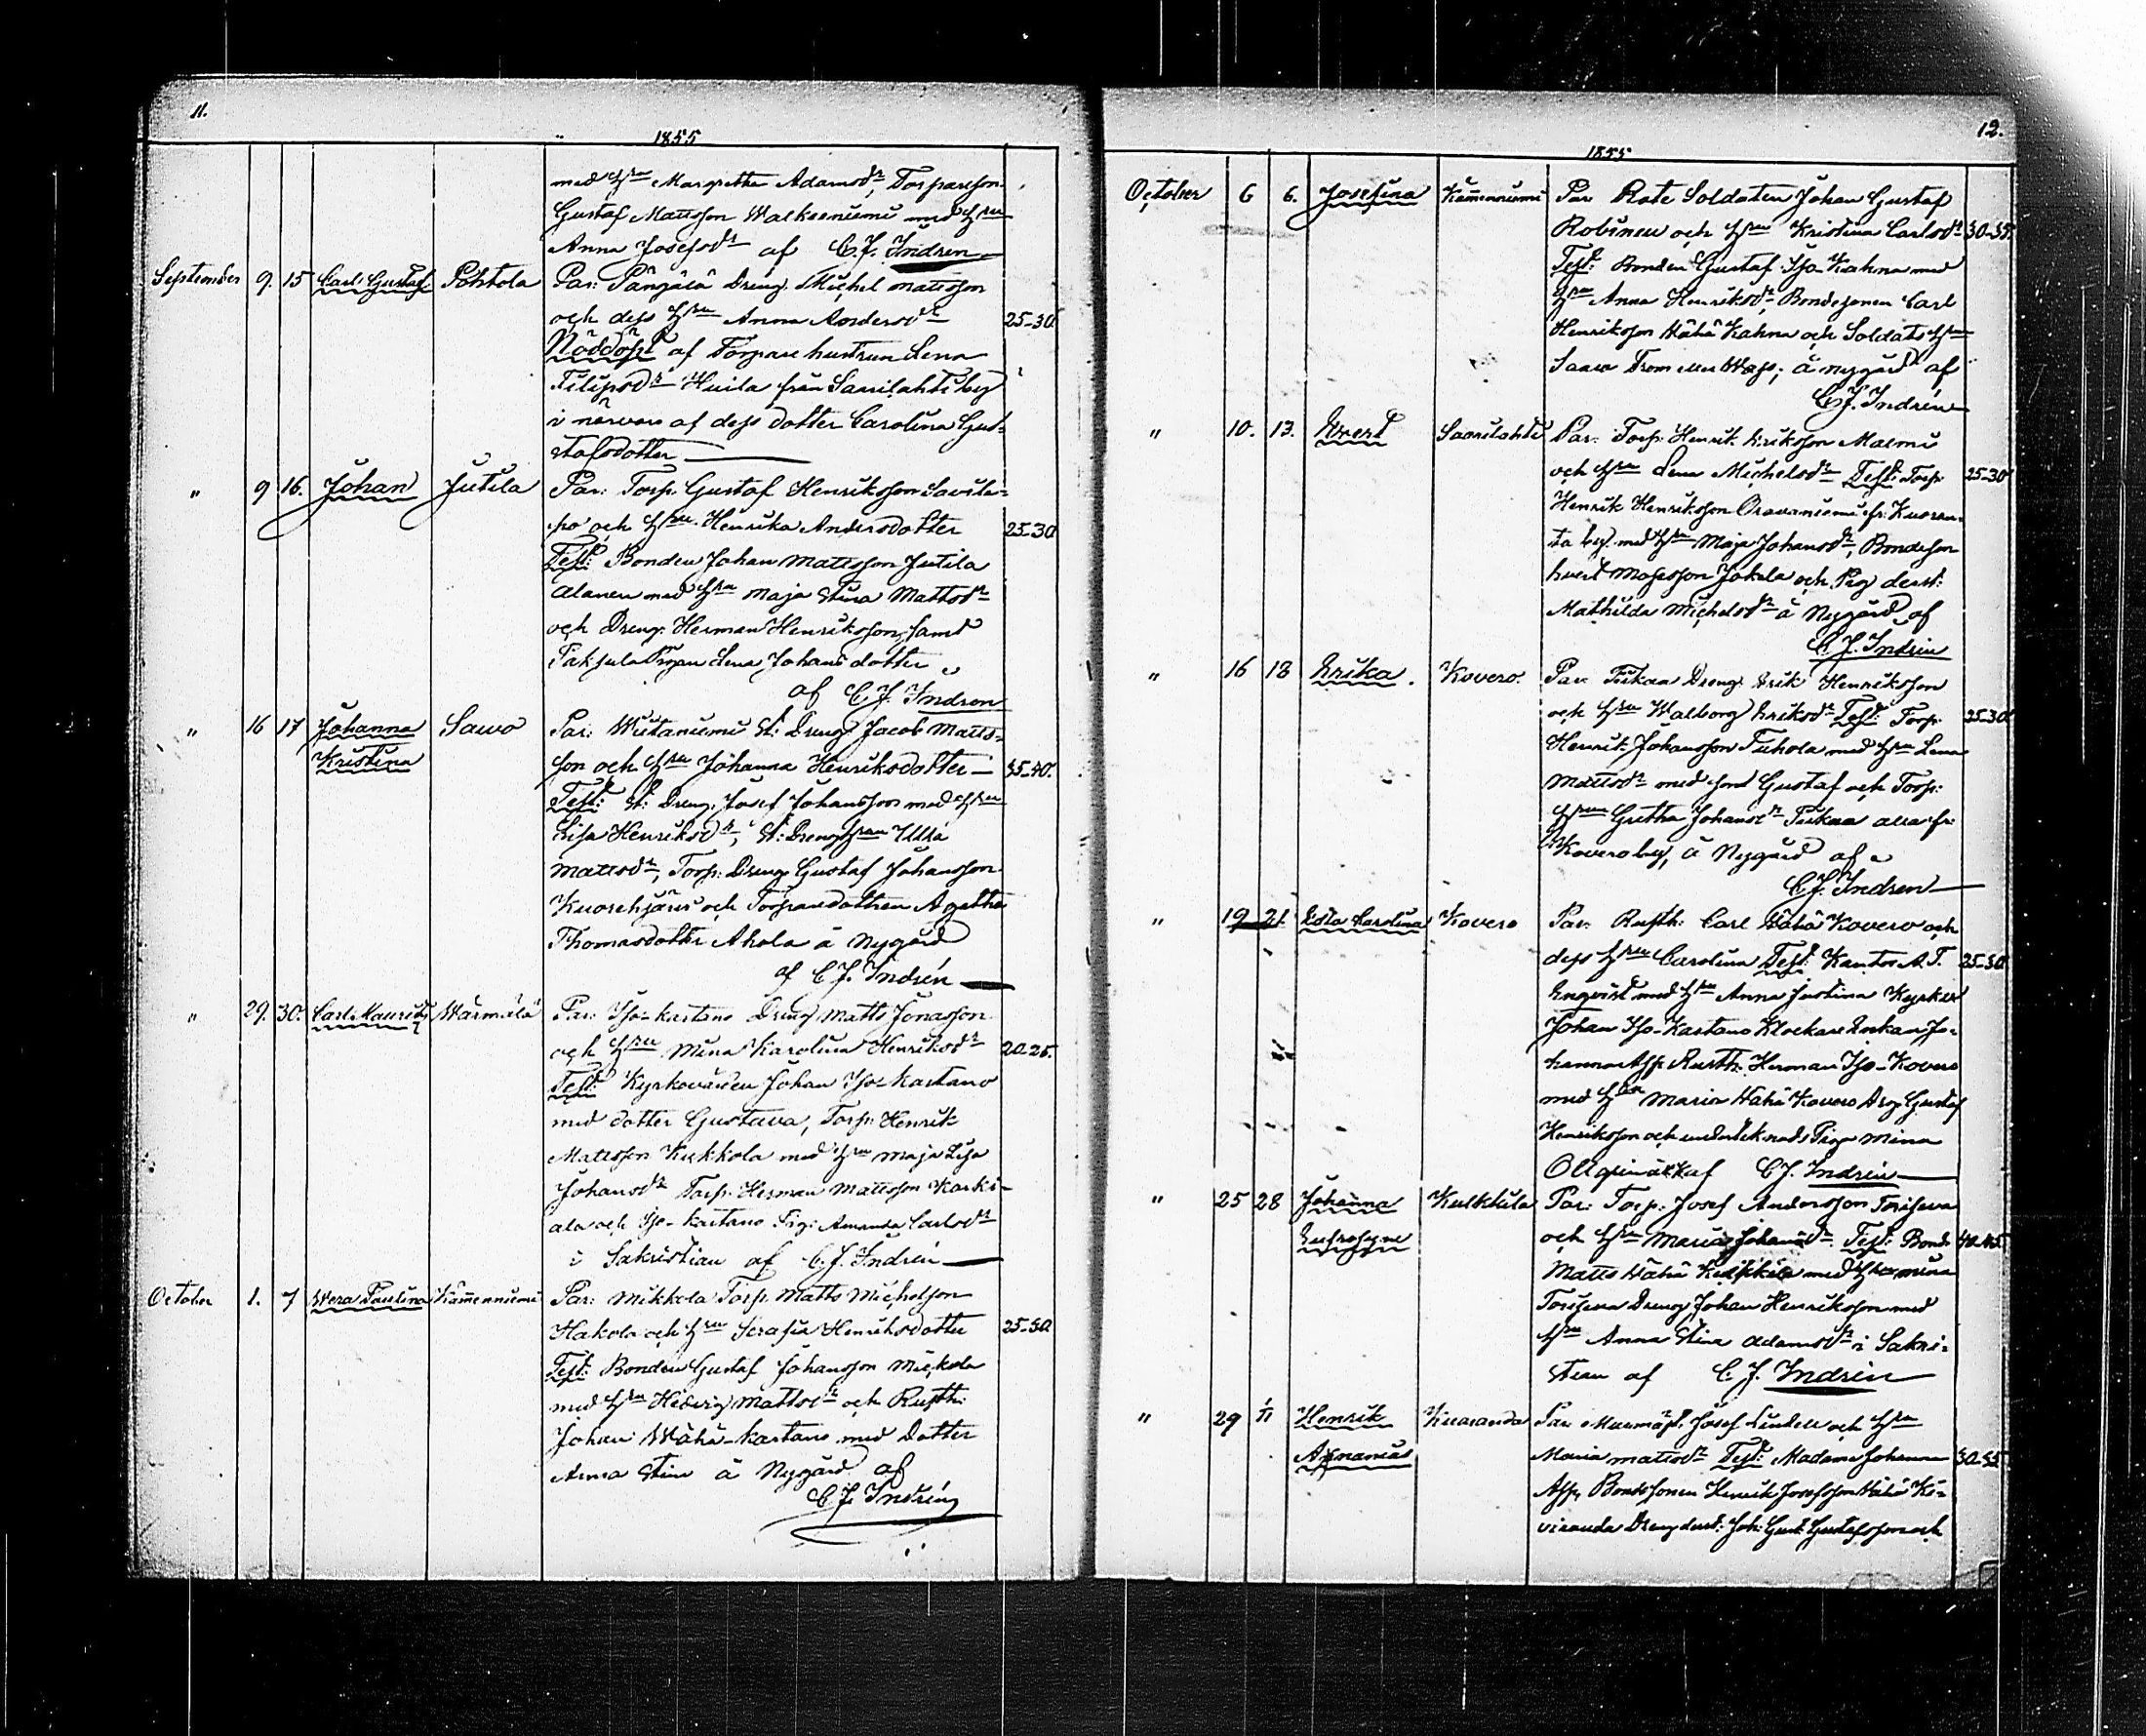 11.
1855
med Hru Margretha Adamsdr, Torpareson
Gustaf Mattsson Walkeeniemi med Hru
Anna Josefsdr af C. J. Indren
September 9. 15 Carl Gustaf Pohtola Par: Pångälä Dreng Michel Mattsson
och dess Hru Anna Andersdr 25-30.
Nöddöpt af Torpare hustrun Lena
Filipsdr Huila från Saarilahti by
i närvaro af dess dotter Carolina Gus-
stafsdotter
" 9 16. Johan Jutila Par: Torp. Gustaf Henriksson Savile-
po och Hru Henrika Andersdotter 25-30
Test: Bonden Johan Mattsson Jutila
Alanen med Hru Maja Stina Mattsdr
och Dreng. Herman Henriksson, samt
Paksula Pigan Lena Johansdotter
af C. J. Indren
" 16 17 Johanna Sawo Par: Wiitaniemi St: Dreng Jacob Matts-
Kristina son och Hru Johanna Henriksdotter 35-40.
Test: St: Dreng. Josef Johansson med Hru
Lisa Henriksdr, St: Dreng Hru Ulla
Mattsdr, Torp: Dreng Gustaf Johansson
Kuorehjärvi och Torparedottren Agatha
Thomasdotter Ahola å Nygård
af C. J. Indrén
" 29. 30. Carl Mauritz Warmälä Par: Iso-Kartano Dreng Matts Jonasson
och Hru Mina Karolina Henriksdr 20-25.
Test: Kyrkovärden Johan Iso-Kartano
med dotter Gustava, Torp: Henrik
Mattsson Kukkola med Hru Maja Lisa
Johansdr Torp. Herman Mattsson Karki-
ala och Iso-Kartano Pig: Amanda Carlsdr
i Sakristian af C. J. Indrén
October 1. 7 Wera Paulina Kämenniemi Par: Mikkola Torp. Matts Michelsson
Hakola och Hru Serafia Henriksdotter 25-30.
Test: Bonden Gustaf Johansson Mickola
med Hru Hedvig Mattsdr och Rusth:
Johan Wähä-Kartano med Dotter
Anna Stina å Nygård af
C J. Indrén
12.
1855
October 6 6. Josefina Kämenniemi Par: Rote Soldaten Johan Gustaf
Robinen och Hru Kristina Carlsdr 30-35.
Test: Bonden Gustaf Iso Kahna med
Hru Anna Henriksdr, Bondesonen Carl
Henriksson Wähä Kahna och Soldats Hru
Saara å Nygård af
C J. Indrén
" 10. 13. Evert Saarilahti Par: Torp: Henrik Eriksson
och Hru Lena Michelsdr Test: Torp. 25-30
Henrik Henriksson Oravaniemi fr:
ta by. med Hru Maja Johansdr, Bondeson
Evert Mosesson Jokela och Pig derst:
Mathilda Michelsdr å Nygård af
C. J. Indrén
" 16 18 Erika. Kovero. Par: Dreng Erik Henriksson
och Hru Walborg Eriksdr Test: Torp. 25-30.
Henrik Johansson Tuhola med Hru Lena
Mattsdr med son Gustaf och Torp:
Hru Gretha Johansdr alla fr:
Kovero by, å Nygård af
C J. Indren
" 19 21. Edla Carolina Kovero Par: Rusth: Carl Wähä Kovero och
dess Hru Carolina Test: Kantor A. T. 25-30.
Enqvist med Hru Anna Justina Kyrkv
Johan Iso-Kartano Klockare Enkan Jo-
hanna Asp Rusth. Herman Iso-Kovero
med Hru Maria Wähä Kovero Drg Gustaf
Henriksson och undertecknads Piga Mina
Ollqvin af C J. Indrén
" 25 28 Johanna Kulkkila Par: Torp: Josef Andersson Torisewa
Eufrosyne och Hru Maria Johansdr Test: Bond: 40-45
Matts Wähä Kulkkila med Hru Mina
Torisewa Dreng Johan Henriksson med
Hru Anna Stina Adamsdr i Sakri-
stian af C. J. Indrén
" 29 1/11 Henrik Kiuranda Par: Murmäst. Josef Lindell och Hru
Ananias Maria Mattsdr Test: Madame Johanna 30-35
Asp, Bondesonen Henrik Josefsson Wähä Ki-
Dreng derst: Joh: Gust: Gustafsson och